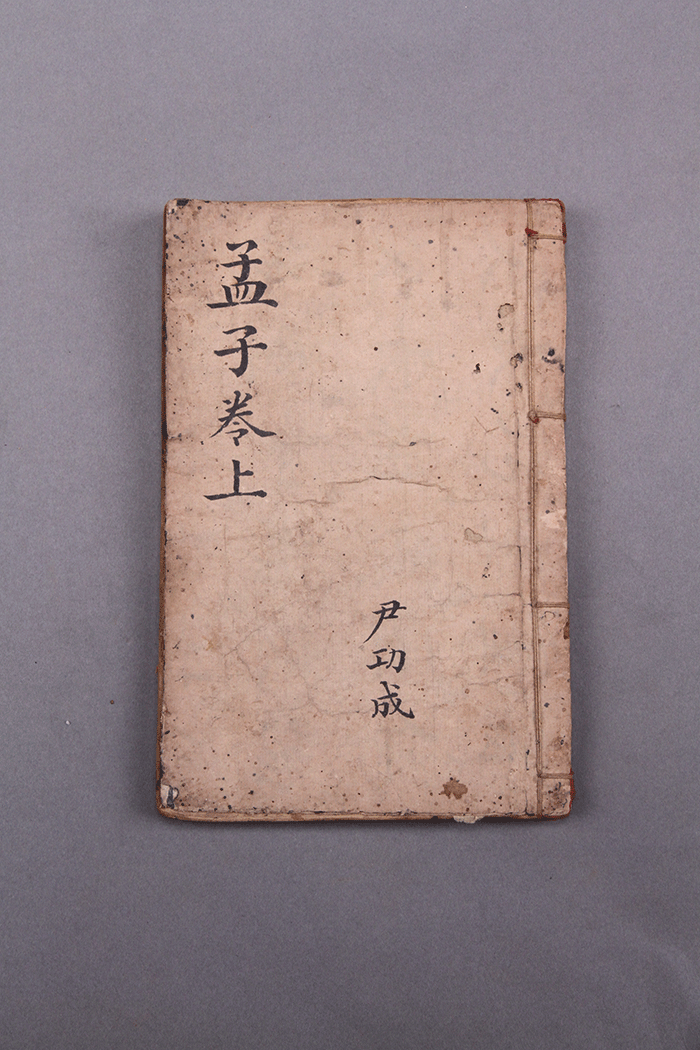 孟子卷上
尹功成